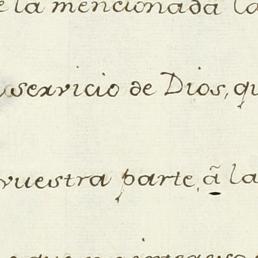 e la mencionada la
servicio de Dios, qu
vuestra parte, ã la